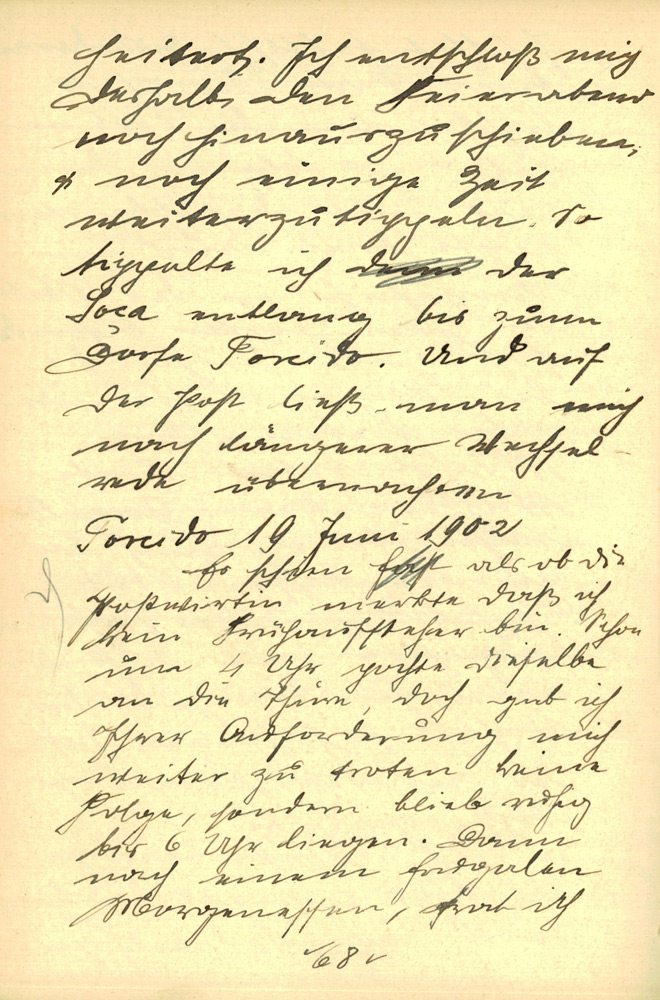 heitert. Ich entschloß mich
deshalb, den Feierabend
noch hinauszuschieben,
& noch einige Zeit
weiterzutippeln. So
tippelte ich der
Soca entlang bis zum
Dorfe Torcido. Und auf
der Post ließ man mich
nach längerer Wechsel-
rede übernachten
Torcido 19 Juni 1902
Es schien fast als ob die
Postwirtin merkte daß ich
kein Frühaufsteher bin. Schon
um 4 Uhr pochte dieselbe
an die Thüre, doch gab ich
Ihrer Aufforderung mich
weiter zu troten keine
Folge, sondern blieb ruhig
bis 6 Uhr liegen. Dann
nach einem frugalen
Morgenessen, trat ich
68